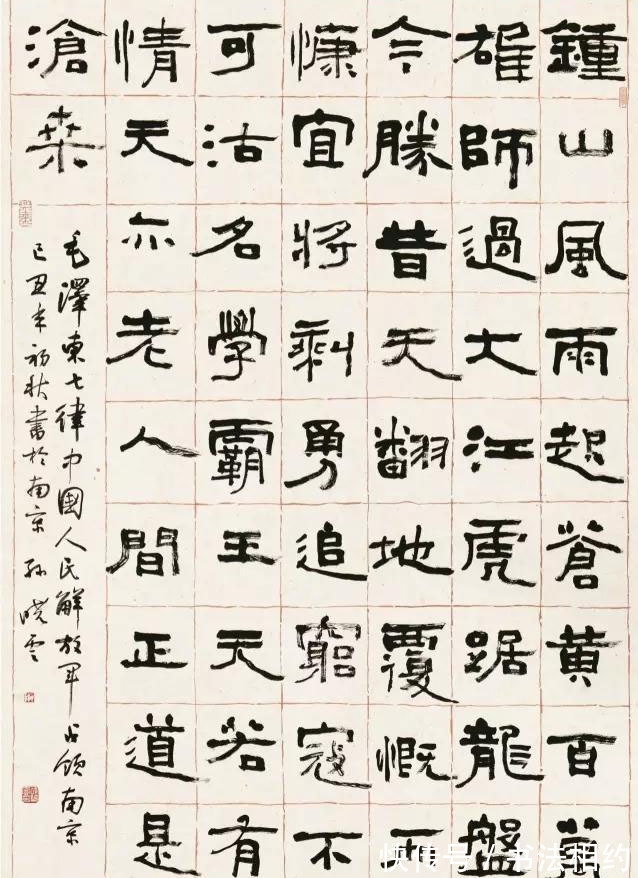 鍾山風雨起蒼黃百萬
雄師過大江虎踞龍盤
今勝昔天翻地覆慨而
慷宜將剩勇追窮寇不
可沽名學霸王天若有
情天亦老人間正道是
滄桑
毛澤東七律中國人民解放軍占領南京
己丑年初秋書於南京 孫曉雲
快传号/书法相约